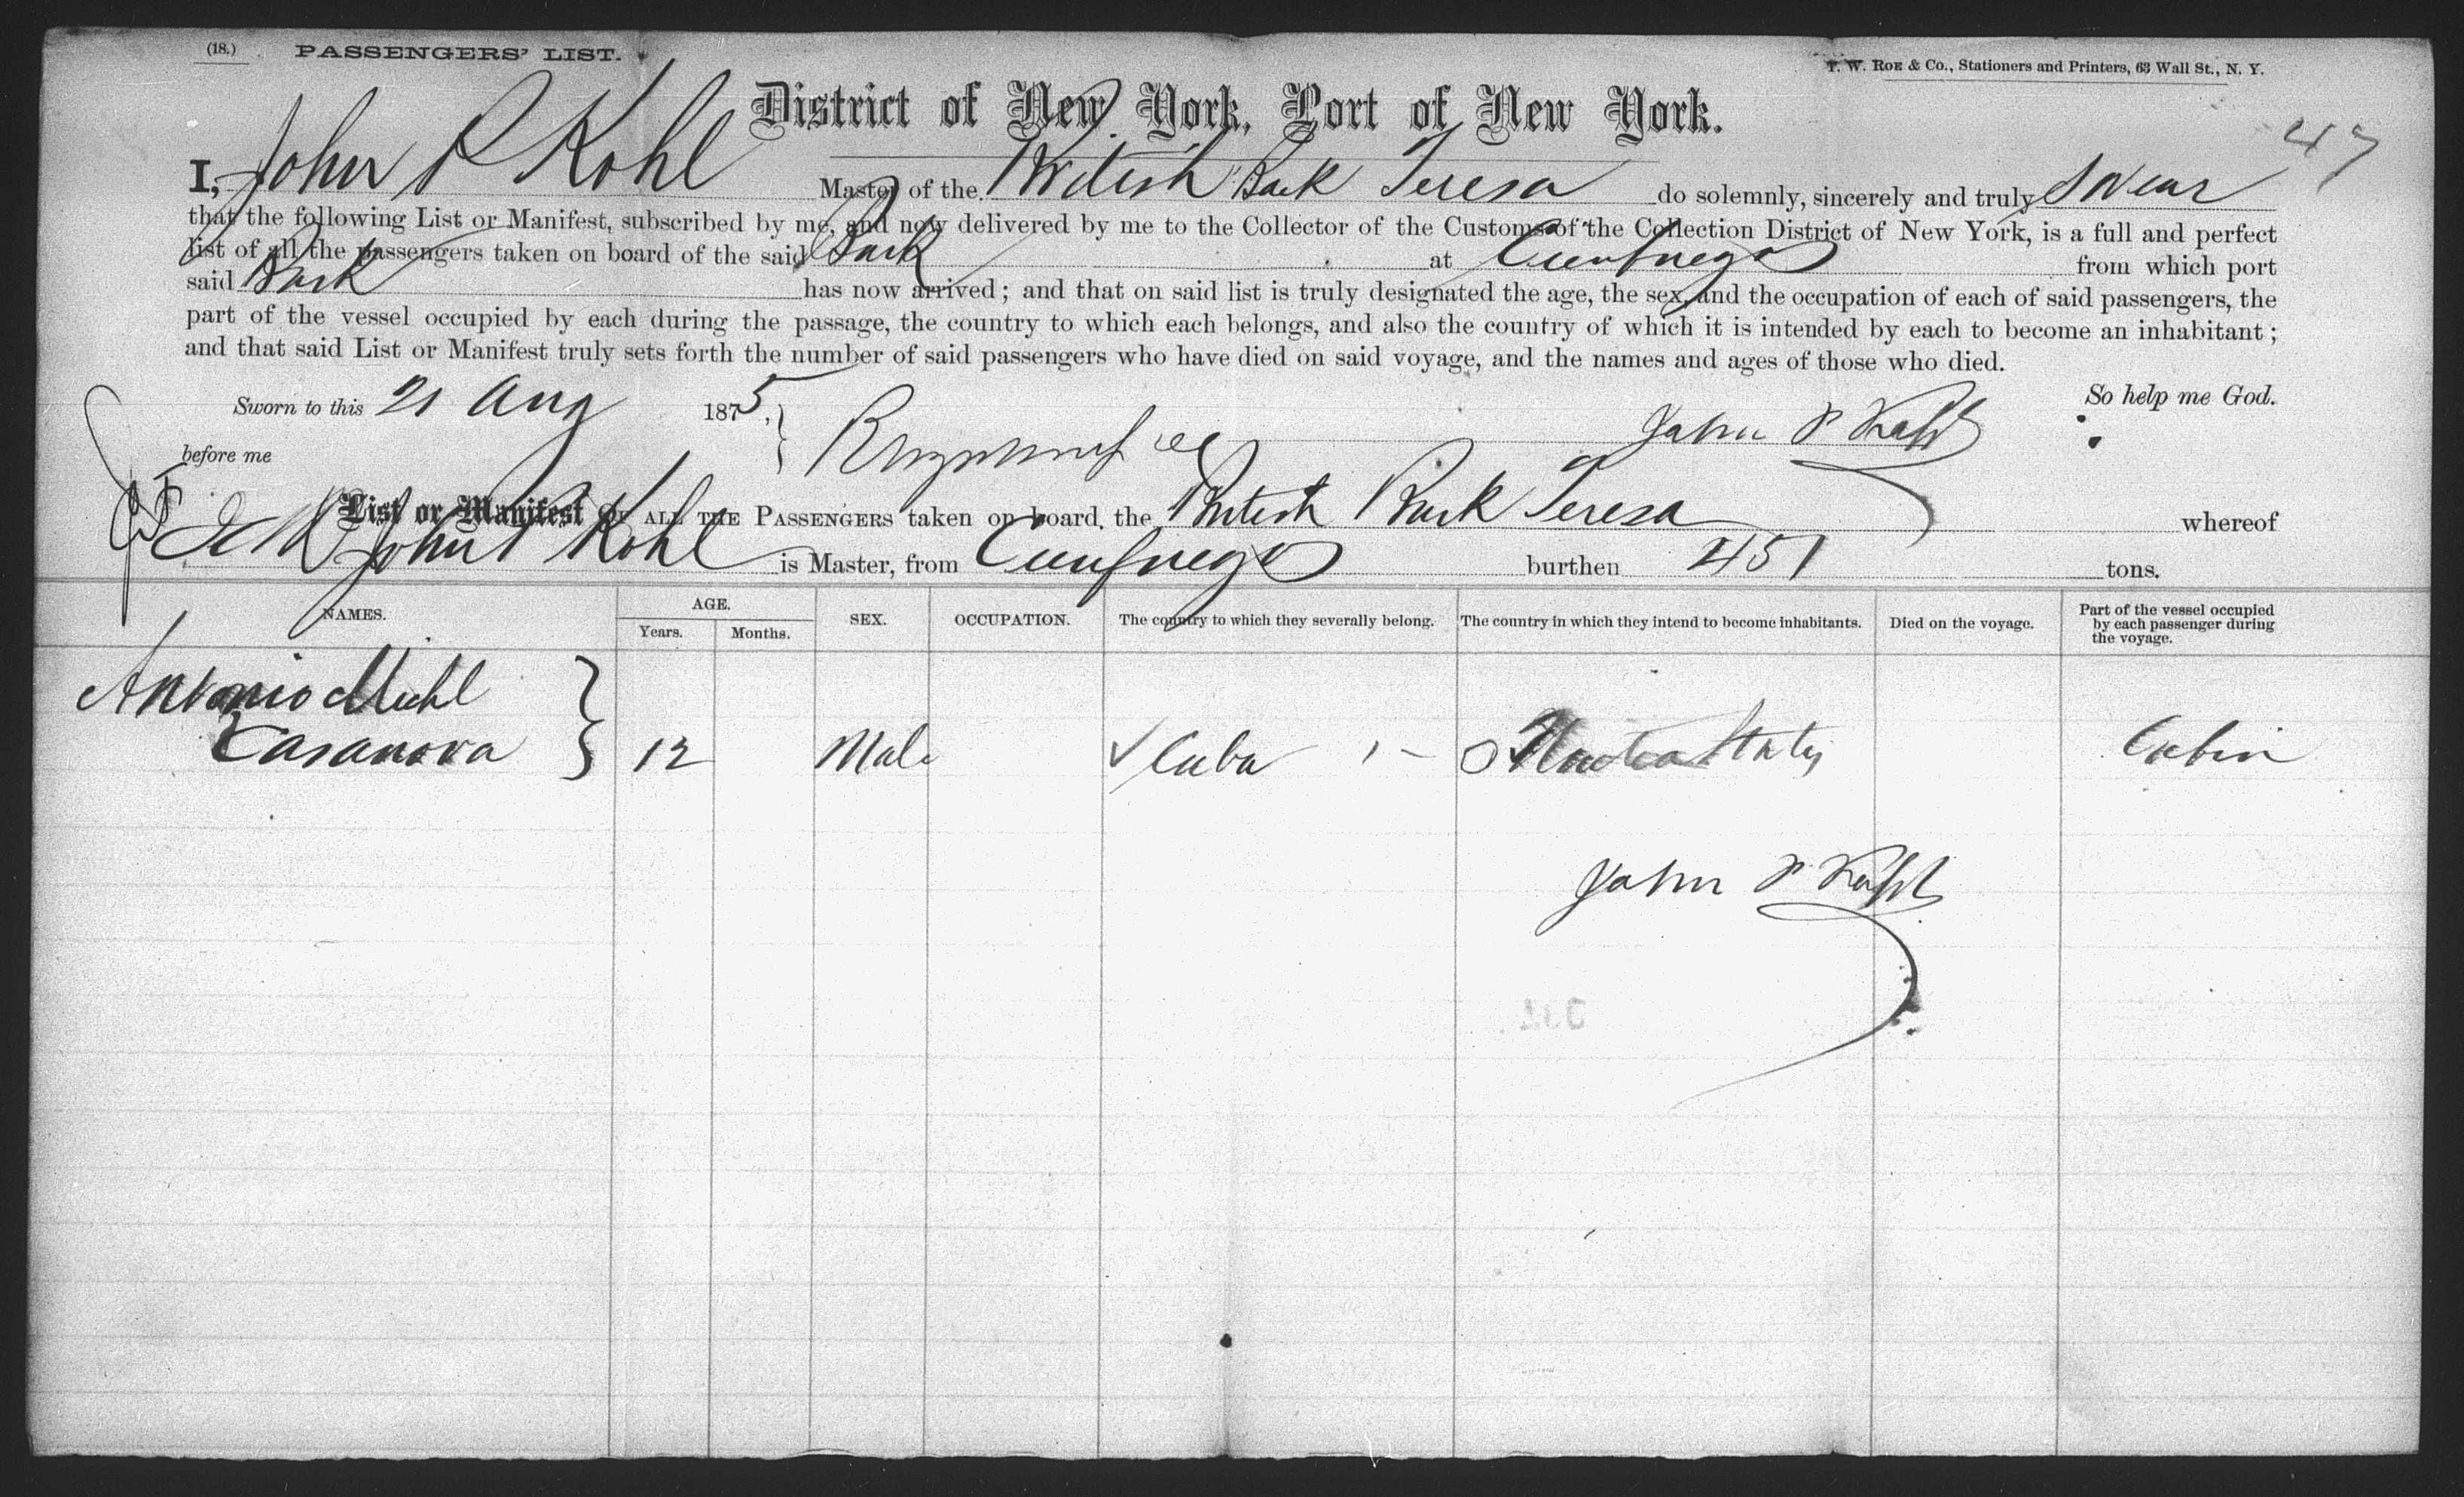 (18.) PASSENGERS' LIST.
T. W. ROE & Co., Stationers and Printers, 63 Wall St., N. Y.
District of New York, Port of New York.
47
I, John P Kohl Master of the British Bark Teresa do solemnly, sincerely and truly swear
that the following List or Manifest, subscribed by me, and now delivered by me to the Collector of the Customs of the Collection District of New York, is a full and perfect
list of all the passengers taken on board of the said Bark at Cienfuegos from which port
said Bark has now arrived; and that on said list is truly designated the age, the sex, and the occupation of each of said passengers, the
part of the vessel occupied by each during the passage, the country to which each belongs, and also the country of which it is intended by each to become an inhabitant;
and that said List or Manifest truly sets forth the number of said passengers who have died on said voyage, and the names and ages of those who died.
Sworn to this 21 Aug 1875, John P Kohl So help me God.
before me
List or Manifest OF ALL THE PASSENGERS taken on board, the British Bark Teresa whereof
John P Kohl is Master, from Cienfuegos burthen 451 tons.
NAMES. AGE. Years. Months. SEX. OCCUPATION. The country to which they severally belong. The country in which they intend to become inhabitants. Died on the voyage. Part of the vessel occupied by each passenger during the voyage.
Antonio Michl
Casanova 12 Male Cuba States Cabin
John P Kohl